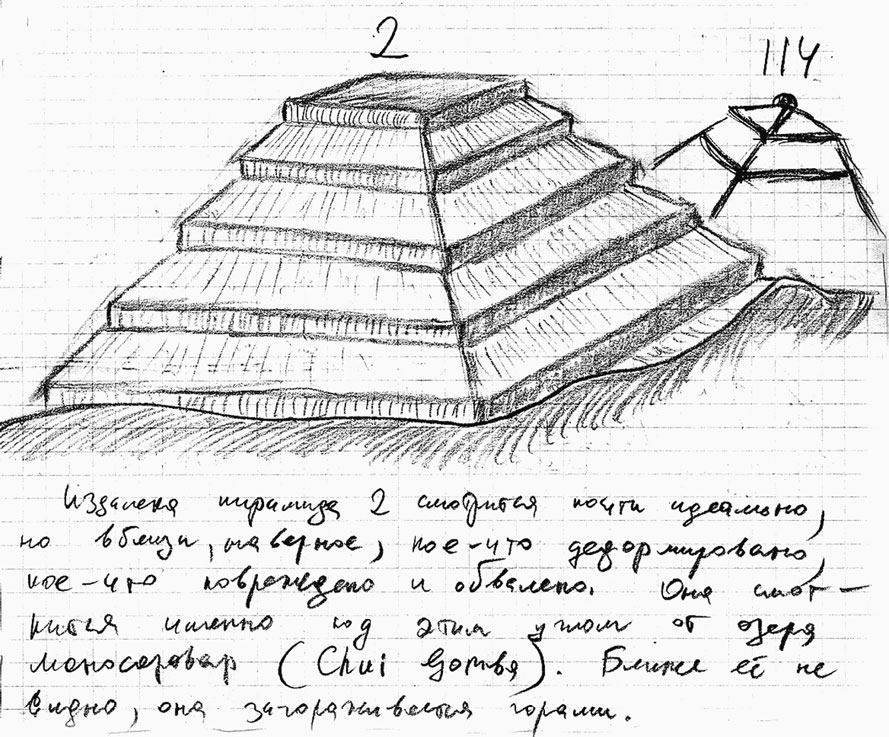 2
114
Издалека пирамида 2 смотрится почти идеально,
но вблизи, наверное, кое-что деформировано,
кое-что повреждено и обвалено. Она смот-
рится именно под этим углом от озера
Моносаровар (Chui Gomba). Ближе её не
видно, она загораживается горами.